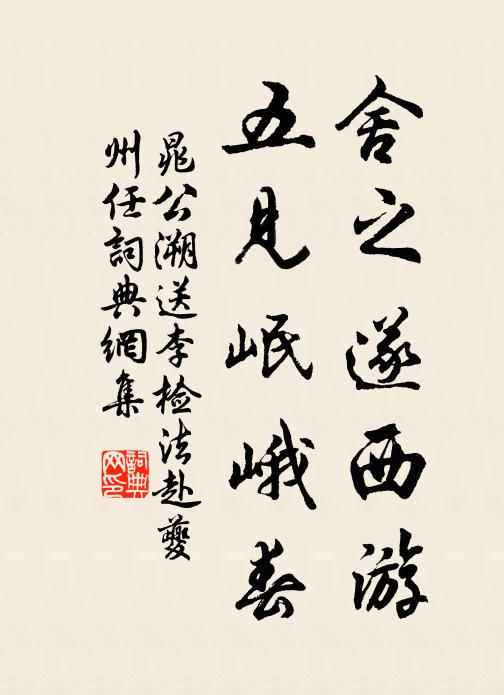 舍之遂西游
五见岷峨春
晁公溯送李检法赴夔
州任词典网集
词典
网印